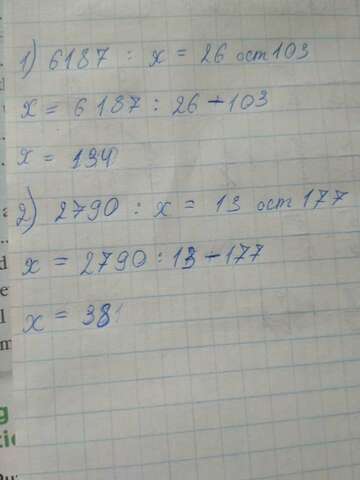 1) 6187 : x = 26 ост 103
x = 6187 : 26 - 103
x = 134
2) 2790 : x = 13 ост 177
x = 2790 : 13 - 177
x = 38